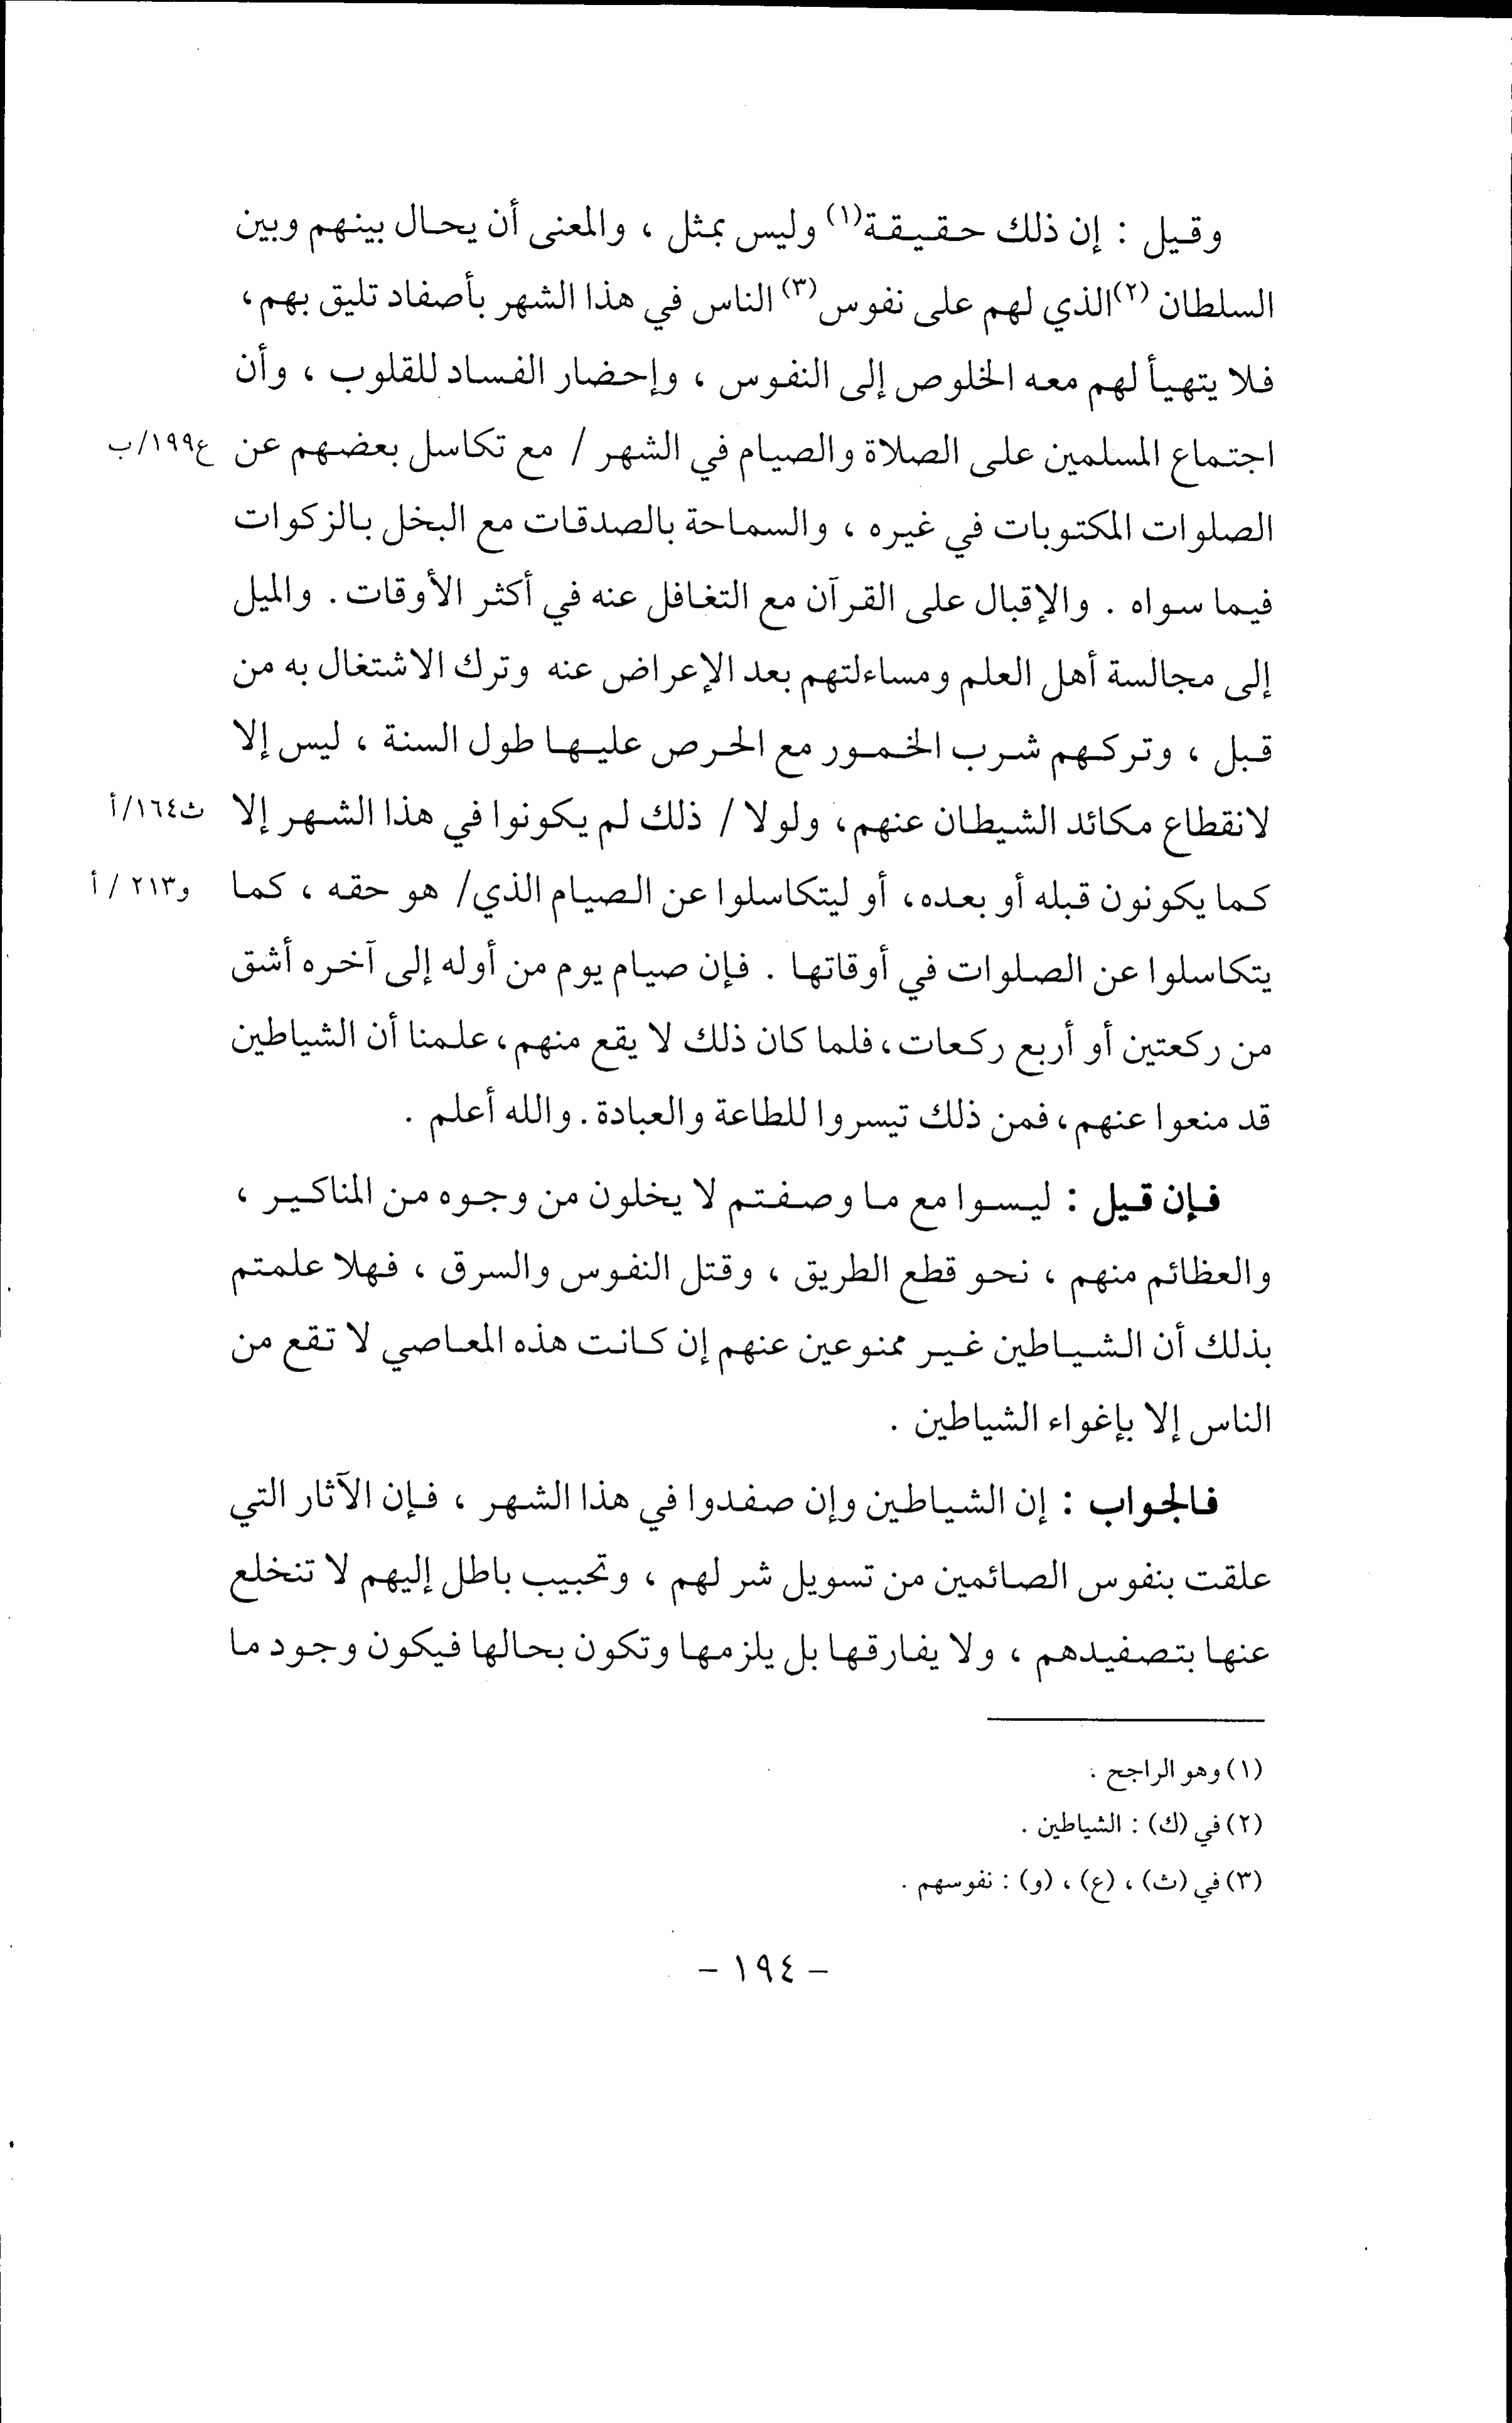 وقيل : إن ذلك حقيقة(١) وليس بمثل ، والمعنى أن يحال بينهم وبين
السلطان (٢)الذي لهم على نفوس(٣) الناس في هذا الشهر بأصفاد تليق بهم،
فلا يتهيأ لهم معه الخلوص إلى النفوس ، وإحضار الفساد للقلوب ، وأن
اجتماع المسلمين على الصلاة والصيام في الشهر / مع تكاسل بعضهم عن ع١٩٩/ب
الصلوات المكتوبات في غيره ، والسماحة بالصدقات مع البخل بالزكوات
فيما سواه . والإقبال على القرآن مع التغافل عنه في أكثر الأوقات . والميل
إلى مجالسة أهل العلم ومساءلتهم بعد الإعراض عنه وترك الاشتغال به من
قبل ، وتركهم شرب الخمور مع الحرص عليها طول السنة ، ليس إلا
لانقطاع مكائد الشيطان عنهم، ولولا / ذلك لم يكونوا في هذا الشهر إلا ث١٦٤/أ
كما يكونون قبله أو بعده، أو ليتكاسلوا عن الصيام الذي/ هو حقه ، كما و٢١٣ / أ
يتكاسلوا عن الصلوات في أوقاتها . فإن صيام يوم من أوله إلى آخره أشق
من ركعتين أو أربع ركعات، فلما كان ذلك لا يقع منهم، علمنا أن الشياطين
قد منعوا عنهم، فمن ذلك تيسروا للطاعة والعبادة. والله أعلم .
فإن قيل : ليسوا مع ما وصفتم لا يخلون من وجوه من المناكير ،
والعظائم منهم ، نحو قطع الطريق ، وقتل النفوس والسرق ، فهلا علمتم
بذلك أن الشياطين غير ممنوعين عنهم إن كانت هذه المعاصي لا تقع من
الناس إلا بإغواء الشياطين .
فالجواب : إن الشياطين وإن صفدوا في هذا الشهر ، فإن الآثار التي
علقت بنفوس الصائمين من تسويل شر لهم ، وتحبيب باطل إليهم لا تنخلع
عنها بتصفيدهم ، ولا يفارقها بل يلزمها وتكون بحالها فيكون وجود ما
(١) وهو الراجح .
(٢) في (ك) : الشياطين .
(٣) في (ث) ، (ع) ، (و) : نفوسهم .
- ١٩٤ -